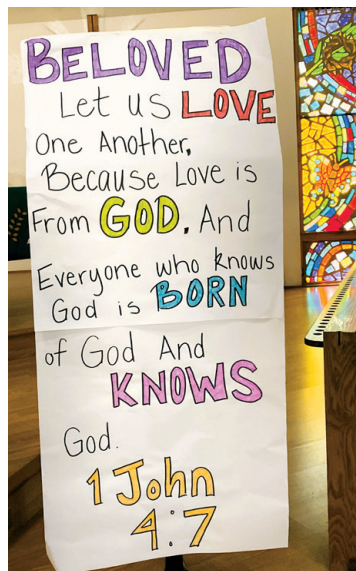 BELOVED
Let us LOVE
One Another,
Because Love is
From GOD. And
Everyone who knows
God is BORN
of God And
KNOWS
God.
1 John
4:7